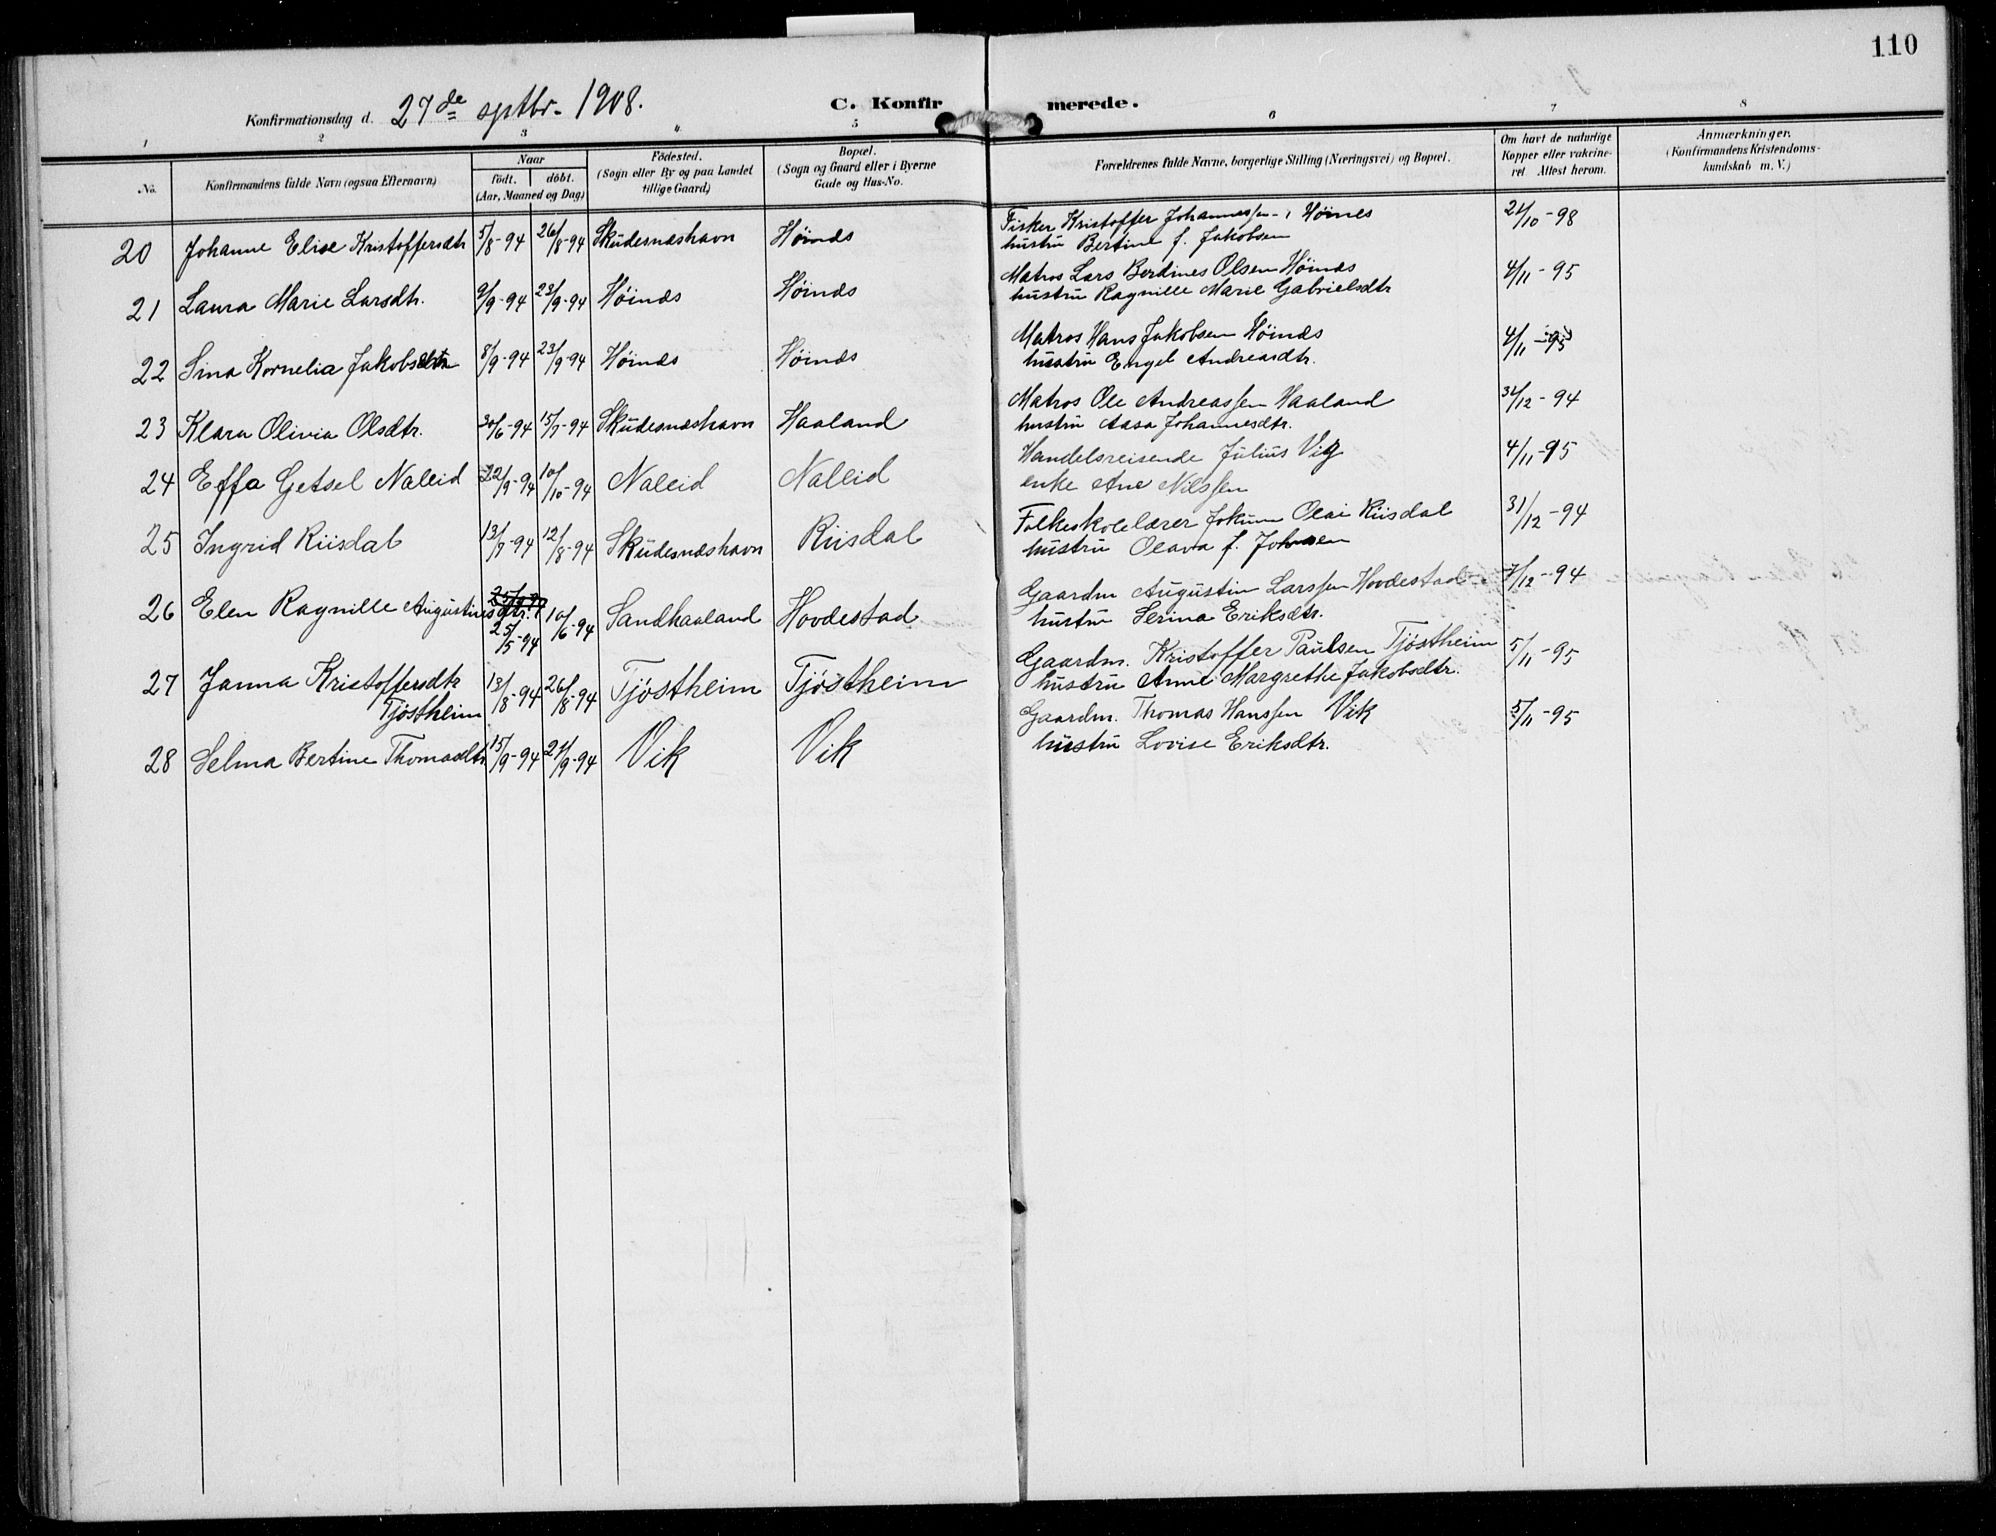 110
Konfirmationsdag d. 27de sptbr. 1908.
C. Konfirmerede.
1 2 3 4 5 6 7 8
No.
Konfirmandens fulde Navn (ogsaa Efternavn)
Naar
födt. döbt.
(Aar, Maaned og Dag)
Födested.
(Sogn eller By og paa Landet
tillige Gaard)
Bopæl.
(Sogn og Gaard eller i Byerne
Gade og Hus-No.
Forældrenes fulde Navne, borgerlige Stilling (Næringsvei) og Bopæl.
Om havt de naturlige
Kopper eller vakcine-
ret. Attest herom.
Anmærkninger.
(Konfirmandens Kristendoms-
kundskab m. V.)
20 Johanne Elise Kristoffersdtr 5/8-94 26/8-94 Skudesnæshavn Høinæs Fisker Kristoffer Johannessen - , Høines 21/10-98
hustru Bertine f. Jakobsen
21 Laura Marie Larsdtr. 9/9-94 23/9-94 Høinæs Høinæs Matros Lars Berdines Olsen Høinæs 4/11-95
hustru Ragnille Marie Gabrielsdtr
22 Sina Kornelia Jakobsdtr 8/9-94 23/9-94 Høinæs Høinæs Matros Hans Jakobsen Høinæs 4/11-95
hustru Engel Andreasdtr.
23 Klara Olivia Olsdtr. 30/6-94 15/7-94 Skudesnæshavn Haaland Matros Ole Andreassen Haaland 31/12-94
hustru Aasa Johannesdtr.
24 Effa Getsel Naleid 22/9-94 10/10-94 Naleid Naleid Handelsreisende Julius Vig 4/11-95
enke Ane Nilssen
25 Ingrid Riisdal 13/7-94 12/8-94 Skudesnæshavn Riisdal Folkeskolelærer Jokum Olai Riisdal 31/12-94
hustru Olava f. Johnsen
26 Elen Ragnille Augustinesdtr. 25/5-94 10/6-94 Sandhaaland Hovdestad Gaardm Augustin Larssen Hovdestad 7/12-94
hustru Serina Eriksdtr.
27 Janna Kristoffersdtr 13/8-94 26/8-94 Tjøstheim Tjøstheim Gaardm. Kristoffer Paulsen Tjøstheim 5/11-95
Tjøstheim hustru Anne Margrethe Jakobsdtr.
28 Selma Bertine Thomasdtr 15/9-94 21/9-94 Vik Vik Gaardm. Thomas Hanssen Vik 5/11-95
hustru Lovise Eriksdtr.